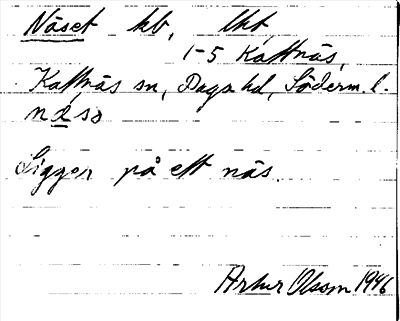 Näset hb, lht
1-5 Kattnäs,
Kattnäs sn, Daga hd, Söderm. l.
näsə
Ligger på ett näs.
Artur Olsson 1946